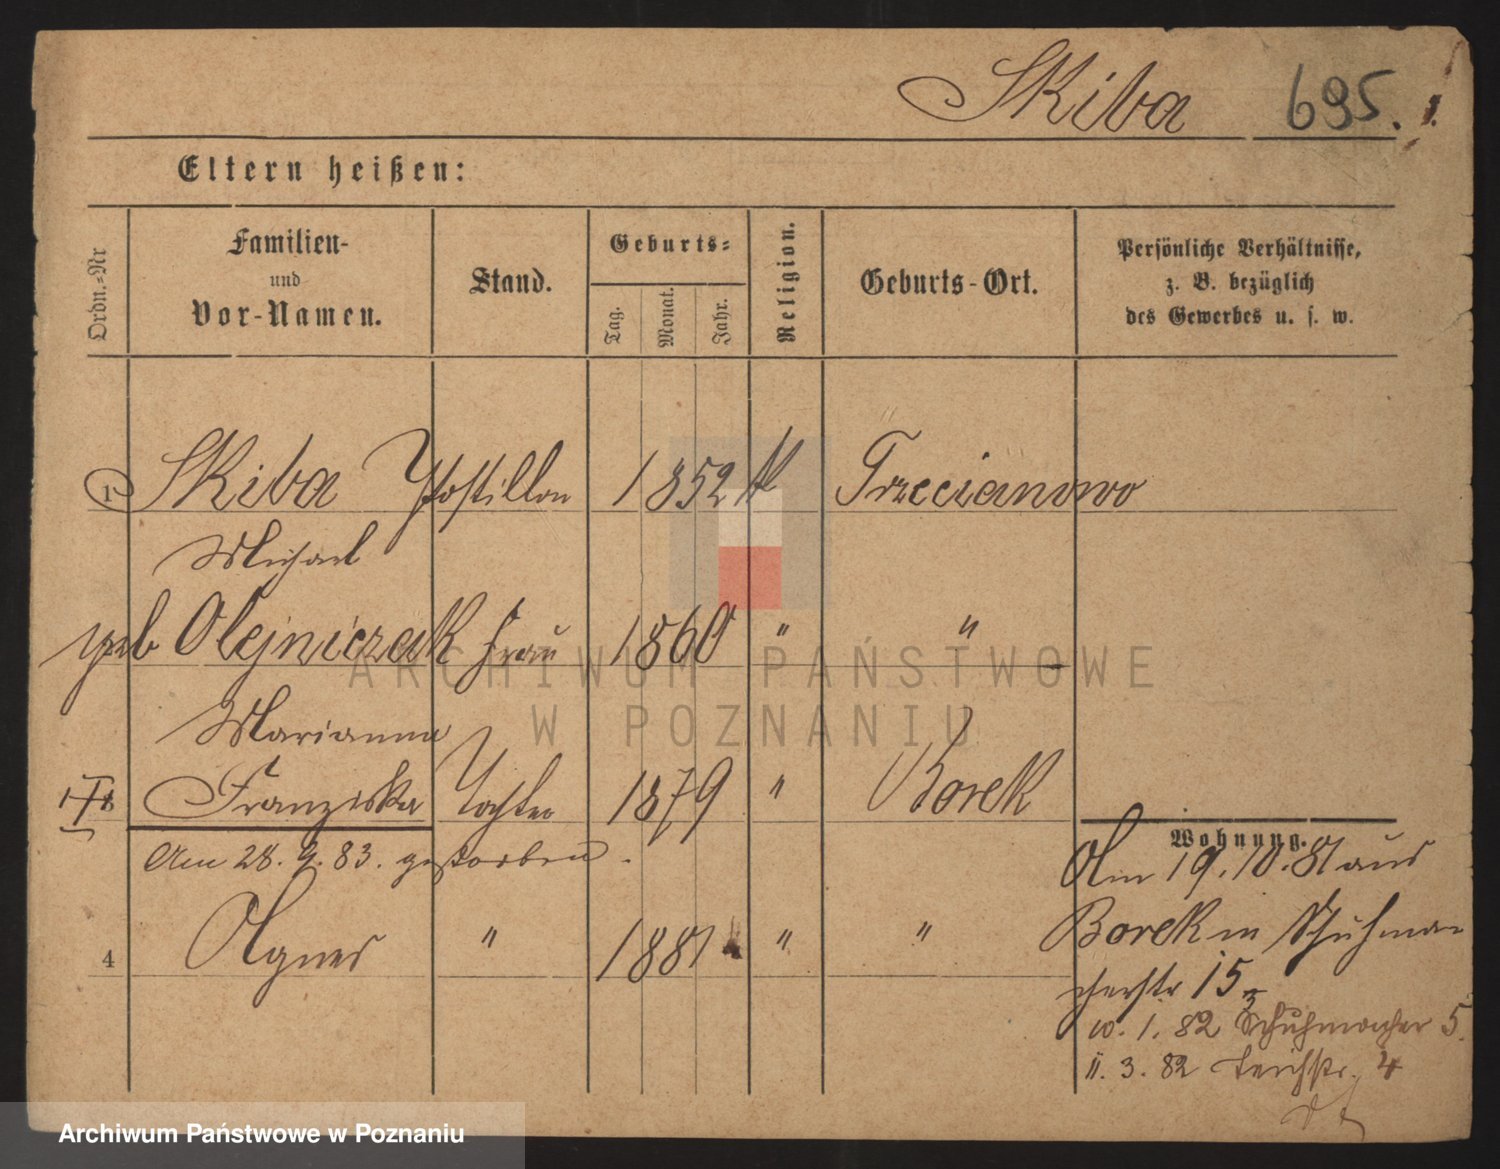 Skiba 695.
Eltern heißen:
Ordn.-Nr
Familien-
und
Vor-Namen.
Stand.
Geburts-
Tag.
Monat.
Jahr.
Religion.
Geburts-Ort.
Persönliche Verhältnisse,
z. B. bezüglich
des Gewerbes u. s. w.
1 Skiba Postillon 1852 K Trzecianowo
Michael
geb Olejniczak Frau 1860 " "
Marianna
Franziska Tochter 1879 " Borek
Am 28. 9. 83. gestorben.
4 Agnes " 1881 " "
Wohnung.
Am 19.10.81 aus
Borek in Schuhma
cherstr 15
10. 1. 82 Schuhmacher 5.
11. 3. 82 Teichstr. 4
ARCHIWUM PAŃSTWOWE
W POZNANIU
Archiwum Państwowe w Poznaniu